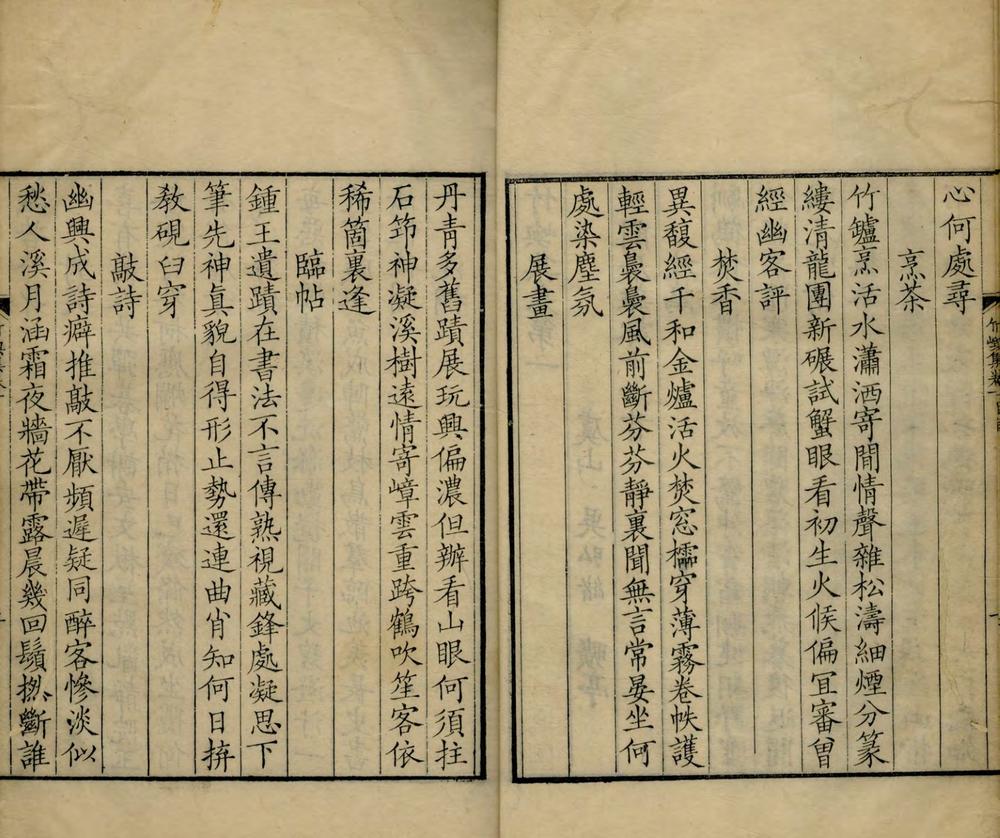 心何處尋
烹茶
竹鑪烹活水瀟洒寄閒情聲雜松濤細煙分篆
縷清龍團新碾試蟹眼看初生火候偏宜審曾
經幽客評
焚香
異馥經千和金爐活火焚窓櫺穿薄霧卷帙護
輕雲裊裊風前斷芬芬靜裏聞無言常晏坐何
處染塵氛
展畫
丹青多舊蹟展玩興偏濃但辦看山眼何須拄
石笻神凝溪樹遠情寄嶂雲重跨鶴吹笙客依
稀箇裏逢
臨帖
鍾王遺蹟在書法不言傳熟視藏鋒處凝思下
筆先神真貌自得形止勢還連曲肖知何日拚
教硯臼穿
敲詩
幽興成詩癖推敲不厭頻遲疑同醉客慘淡似
愁人溪月涵霜夜牆花帶露晨幾回鬚撚斷誰